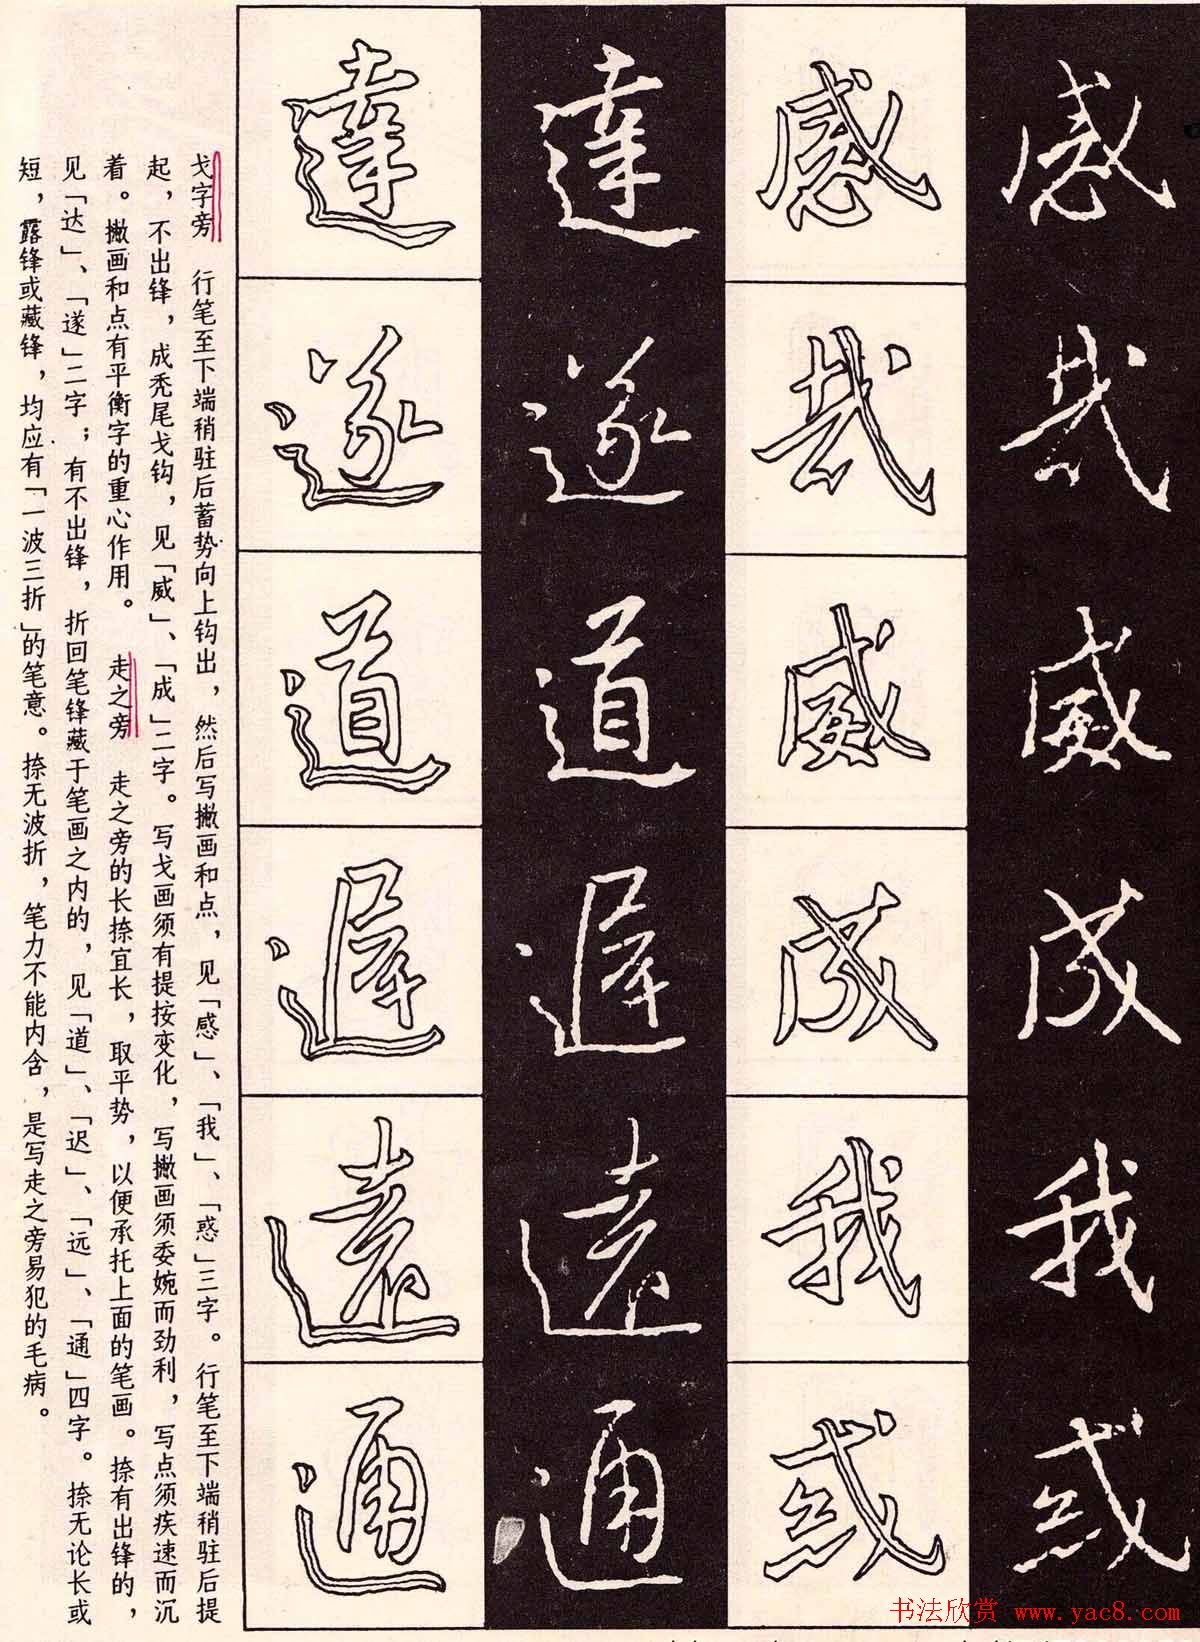 感
哉
威
成
我
或
感
哉
威
成
我
或
達
遂
道
遲
遠
通
達
遂
道
遲
遠
通
戈字旁　行笔至下端稍驻后蓄势向上钩出，然后写撇画和点，见「感」、「我」、「惑」三字。行笔至下端稍驻后提
起，不出锋，成秃尾戈钩，见「威」、「成」二字。写戈画须有提按变化，写撇画须委婉而劲利，写点须疾速而沉
着。撇画和点有平衡字的重心作用。　走之旁　走之旁的长捺宜长，取平势，以便承托上面的笔画。捺有出锋的，
见「达」、「遂」二字；有不出锋，折回笔锋藏于笔画之内的，见「道」、「迟」、「远」、「通」四字。捺无论长或
短，露锋或藏锋，均应有「一波三折」的笔意。捺无波折，笔力不能内含，是写走之旁易犯的毛病。
书法欣赏 www.yac8.com